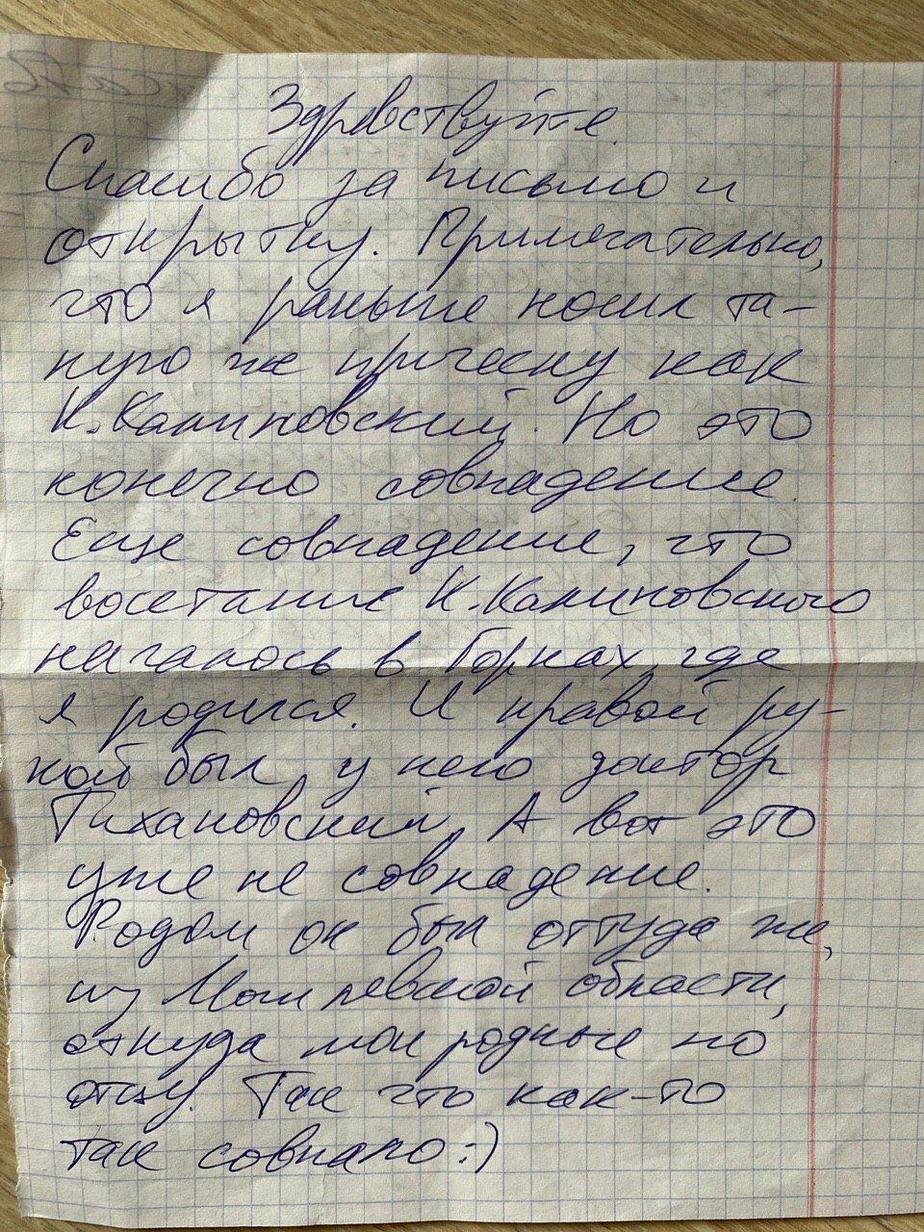 Здравствуйте
Спасибо за письмо и
открытку. Примечательно,
что я раньше носил та-
кую же прическу как
К.Калиновский. Но это
конечно совпадение.
Еще совпадение, что
восстание К.Калиновского
началось в Горках, где
я родился. И правой ру-
кой был у него доктор
Тихановский. А вот это
уже не совпадение.
Родом он был оттуда же,
из Могилевской области,
откуда мои родные по
отцу. Так что как-то
так совпало:)